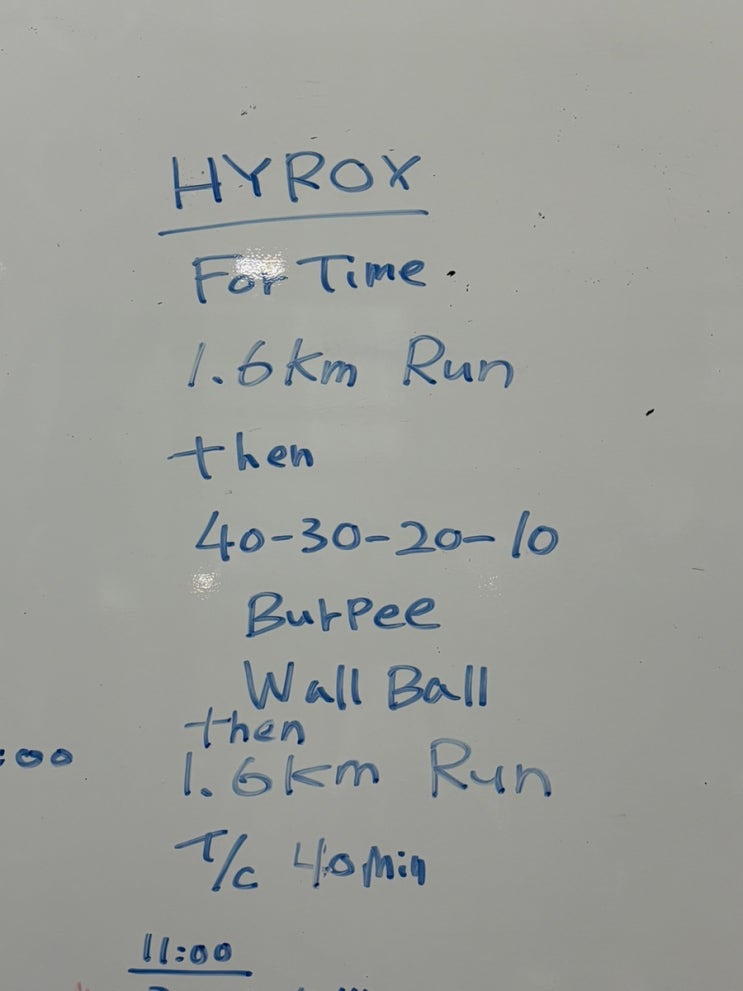 HYROX
For Time
1.6km Run
then
40-30-20-10
Burpee
Wall Ball
then
:00
1.6km Run
T/C 40min
11:00